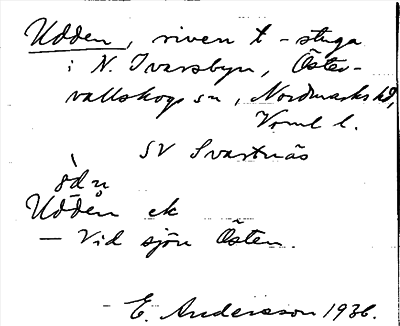 Udden, riven t-stuga
i N. Ivarsbyn, Öster-
vallskogs sn, Nordmarks hd,
Vrml l.
SV Svartnäs
ùd̄n
Uddėn ek
– Vid sjön Östen.
E. Andersson 1936.